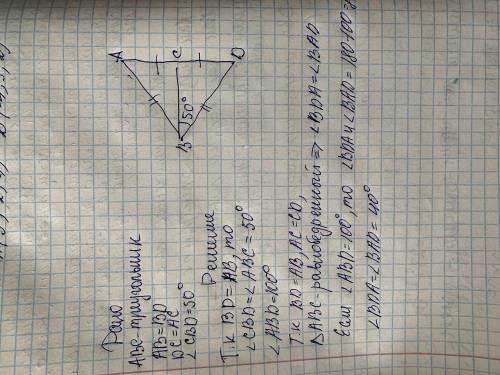 A
C
D
B
50°
Дано
ABC-треугольник
AB=BD
DC=AC
∠CBD=50°
Решение
Т.к BD=AB, то
∠CBD=∠ABC=50°
∠ABD=100°
Т.к BD=AB, AC=CD,
△ABC-равнобедренный⇒∠BDA=∠BAD
Если ∠ABD=100°, то ∠BDA и ∠BAD=180-100=
∠BDA=∠BAD=40°